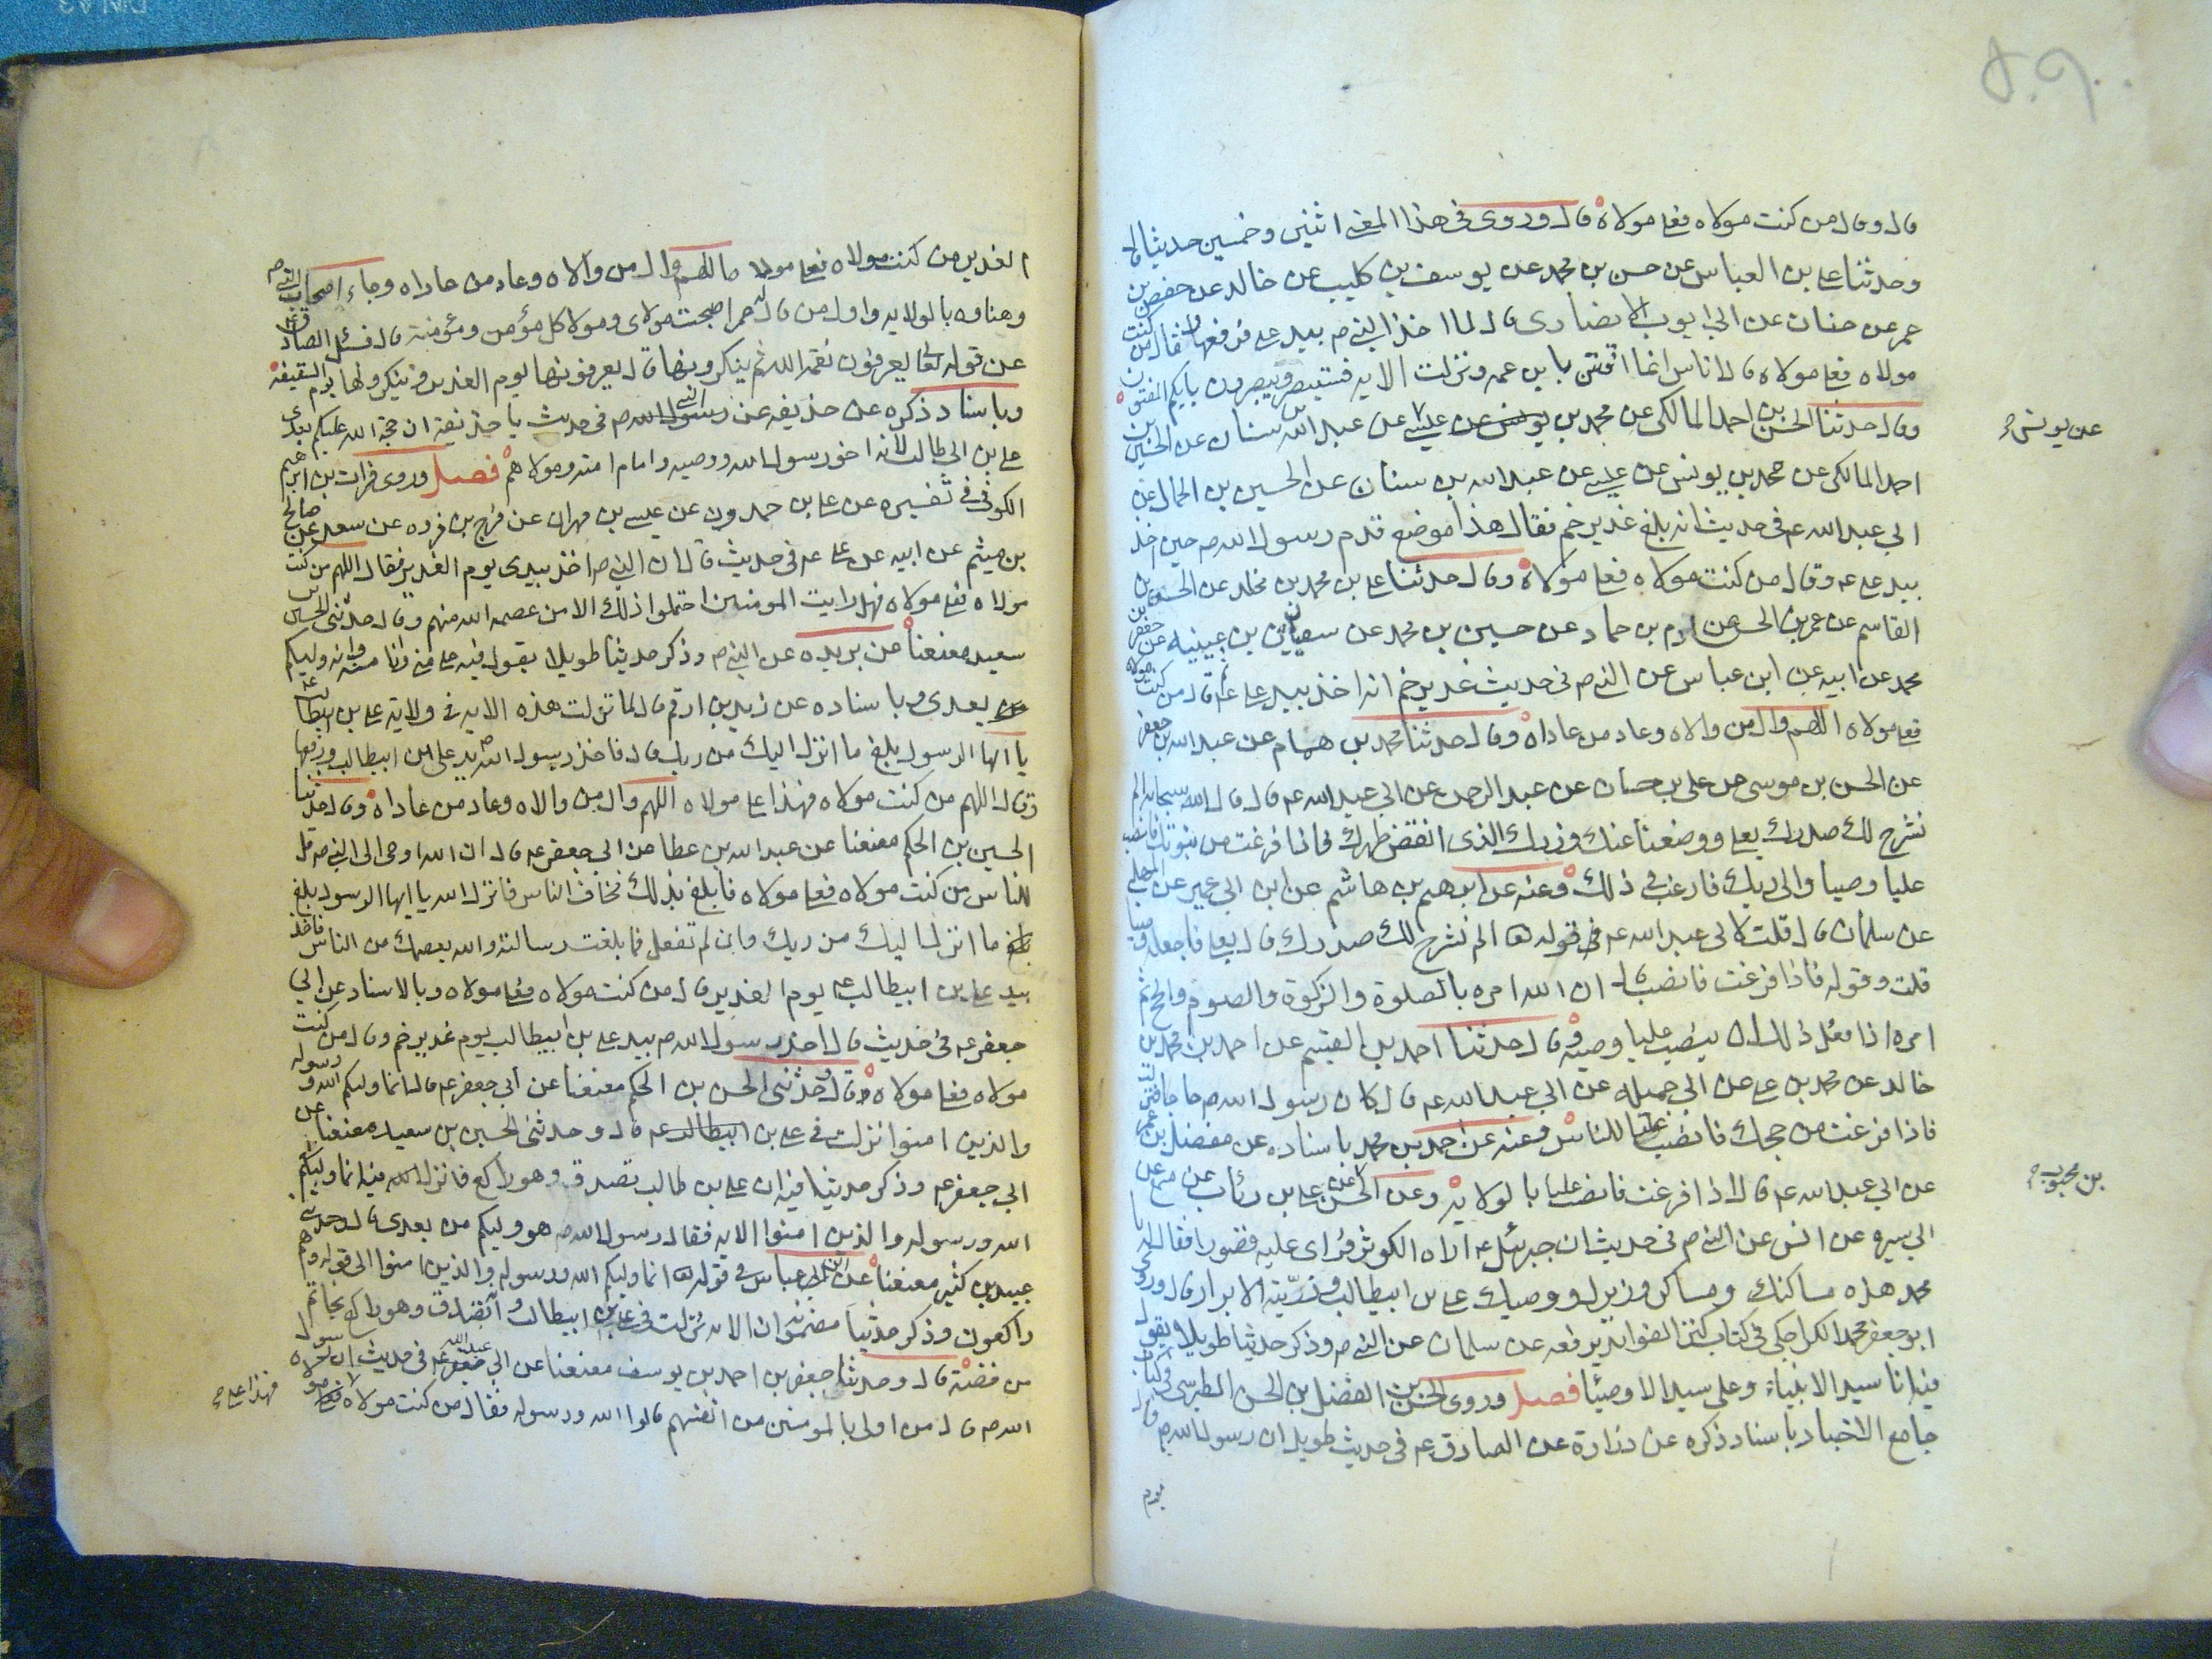 قال وقال من كنت مولاه فعلي مولاه قال وروى في هذا المعنى اثنين وخمسين حديثا قال
وحدثنا علي بن العباس عن حسن بن محمد عن يوسف بن كليب عن خالد عن حفص بن
عمر عن حنان عن ابي ايوب الانصاري قال لما اخذ النبي ص بيد علي فرفعها وقال من كنت
مولاه فعلي مولاه قال اناس انما افتتن بابن عمه ونزلت الايه فستبصر ويبصرون بايكم المفتون
وقال حدثنا الحسن بن احمد المالكي عن محمد بن عيسى عن عبد الله بن سنان عن الحسين بن
عن يونس
احمد المالكي عن محمد بن يونس عن عيسى عن عبد الله بن سنان عن الحسين بن الجمال عن
ابي عبد الله عم في حديث انه بلغ غدير خم فقال هذا موضع قدم رسول الله ص حين اخذ
بيد علي عم وقال من كنت مولاه فعلي مولاه وقال حدثنا علي بن محمد بن مخلد عن الحسن بن
القاسم عن عمر بن الحسن عن ادم بن حماد عن حسين بن محمد عن سفيان بن عيينه عن جعفر بن
محمد عن ابيه عن ابن عباس عن النبي ص في حديث غدير خم انه اخذ بيد علي ثم قال من كنت مولاه
فعلي مولاه اللهم وال من والاه وعاد من عاداه وقال حدثنا محمد بن همام عن عبد الله بن جعفر
عن الحسن بن موسى عن علي بن حسان عن عبد الرحمن عن ابي عبد الله عم قال قال الله سبحانه الم
نشرح لك صدرك بعلي ووضعنا عنك وزرك الذي انقض ظهرك فاذا فرغت من نبوتك فانصب
عليا وصيا والى ربك فارغب في ذلك وعنه عن ابرهيم بن هاشم عن ابن ابي عمير عن المهلبي
عن سلمان قال قلت لابي عبد الله عم في قوله الم نشرح لك صدرك قال بعلي فاجعله وصيا
قلت وقوله فاذا فرغت فانصب قال ان الله امره بالصلوة والزكوة والصوم والحج ثم
امره اذا فعل ذلك ان ينصب عليا وصيه وقال حدثنا احمد بن القسم عن احمد بن محمد بن
خالد عن محمد بن علي عن ابي جميله عن ابي عبد الله عم قال كان رسول الله ص حاجا فنزلت
فاذا فرغت من حجك فانصب عليا للناس وعنه عن احمد بن محمد باسناده عن مفضل بن عمر
عن ابي عبد الله عم قال اذا فرغت فانصب عليا بالولايه وعن الحسن عن علي بن رئاب عن
بن محبوب
ابي سيره عن انس عن النبي ص في حديث ان جبرئيل عم اراه الكوثر فراى عليه قصورا فقال يا
محمد هذه مساكنك ومساكن وزيرك ووصيك علي بن ابيطالب وذريته الابرار قال وروى
ابو جعفر محمد الكراجكي في كتاب كنز الفوائد يرفعه عن سلمان عن النبي ص وذكر حديثا طويلا ويقول
فيه انا سيد الانبياء وعلي سيد الاوصياء فصل وروى الحسن بن الفضل بن الحسن الطبرسي في كتاب
جامع الاخبار باسناد ذكره عن زرارة عن الصادق عم في حديث طويل ان رسول الله ص قال
يوم
الغدير من كنت مولاه فعلي مولاه اللهم وال من والاه وعاد من عاداه وجاء اصحاب النبي ص
وهناوه بالولايه واول من قال له عمر اصبحت مولاى ومولا كل مؤمن ومؤمنة قال فسئل الصادق
عن قوله تعالى يعرفون نعمة الله ثم ينكرونها قال يعرفونها يوم الغدير وينكرونها يوم السقيفة
وباسناد ذكره عن حذيفه عن النبي ص في حديث يا حذيفة ان حجة الله عليكم بعدى
علي بن ابي طالب لانه اخو رسول الله ووصيه وامام امته ومولاهم فصل وروى فرات بن ابراهيم
الكوفي في تفسيره عن علي بن حمدون عن عيسى بن مهران عن فرج بن فروه عن سعد عن صالح
بن ميثم عن ابيه عن علي عم في حديث قال ان النبي ص اخذ بيدى يوم الغدير فقال اللهم من كنت
مولاه فعلي مولاه فهل رايت المومنين احتملوا ذلك الا من عصمه الله منهم وقال حدثني الحسين بن
سعيد معنعنا عن بريده عن النبي ص وذكر حديثا طويلا يقول فيه علي مني وانا منه وانه وليكم
بعدى وباسناده عن زيد بن ارقم قال لما نزلت هذه الايه في ولاية علي بن ابيطالب
يا ايها الرسول بلغ ما انزل اليك من ربك قال فاخذ رسول الله ص يد علي بن ابيطالب ورفعها
وقال اللهم من كنت مولاه فهذا علي مولاه اللهم وال من والاه وعاد من عاداه وقال حدثنا
الحسين بن الحكم معنعنا عن عبد الله بن عطا عن ابي جعفر عم قال ان الله اوحى الى النبي ص قل
للناس من كنت مولاه فعلي مولاه فابلغ بذلك فخاف الناس فانزل الله يا ايها الرسول بلغ
ما انزل اليك من ربك وان لم تفعل فما بلغت رسالته والله يعصمك من الناس فاخذ
بيد علي بن ابيطالب يوم الغدير قال من كنت مولاه فعلي مولاه وبالاسناد عن ابي
جعفر عم في حديث قال اخذ رسول الله ص بيد علي بن ابيطالب يوم غدير خم وقال من كنت
مولاه فعلي مولاه وقال وحدثنى الحسن بن الحكم معنعنا عن ابي جعفر عم قال انما وليكم الله ورسوله
والذين امنوا نزلت في علي بن ابيطالب عم قال وحدثني الحسين بن سعيد معنعنا عن
ابي جعفر عم وذكر حديثا فيه ان علي بن طالب تصدق وهو راكع فانزل الله فيه انما وليكم
الله ورسوله والذين امنوا الايه فقال رسول الله ص هو وليكم من بعدى قال وحدثنى
عبيد بن كثير معنعنا عن ابن عباس في قوله انما وليكم الله ورسوله والذين امنوا الى قوله وهم
راكعون وذكر حديثا مضمونه ان الايه نزلت في علي بن ابيطالب وانه تصدق وهو راكع بخاتم
من فضة قال وحدثنا جعفر بن احمد بن يوسف معنعنا عن ابي عبد الله عم في حديث ان رسول
الله ص قال من اولى بالمومنين من انفسهم قالوا الله ورسوله فقال من كنت مولاه مولاه
فهذا علي